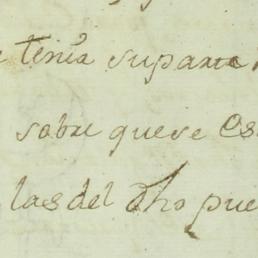 tenia suparte
sobre queve es
las del dho pue